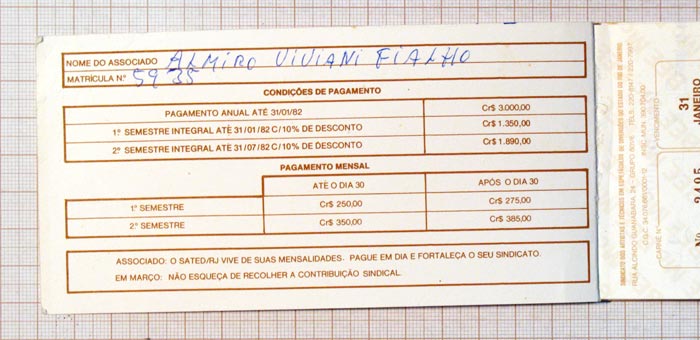 NOME DO ASSOCIADO ALMIRO VIVIANI FIALHO
MATRÍCULA N.º 5935
CONDIÇÕES DE PAGAMENTO
PAGAMENTO ANUAL ATÉ 31/01/82 Cr$ 3.000,00
1º SEMESTRE INTEGRAL ATÉ 31/01/82 C/10% DE DESCONTO Cr$ 1.350,00
2º SEMESTRE INTEGRAL ATÉ 31/07/82 C/10% DE DESCONTO Cr$ 1.890,00
PAGAMENTO MENSAL
ATÉ O DIA 30 APÓS O DIA 30
1º SEMESTRE Cr$ 250,00 Cr$ 275,00
2º SEMESTRE Cr$ 350,00 Cr$ 385,00
ASSOCIADO: O SATED/RJ VIVE DE SUAS MENSALIDADES. PAGUE EM DIA E FORTALEÇA O SEU SINDICATO.
EM MARÇO: NÃO ESQUEÇA DE RECOLHER A CONTRIBUIÇÃO SINDICAL.
SINDICATO DOS ARTISTAS E TÉCNICOS EM ESPETÁCULOS DE DIVERSÕES DO ESTADO DO RIO DE JANEIRO
RUA ALCINDO GUANABARA
CARNÊ N.º
VENCIMENTO
31
JANEIRO
Nº 2495